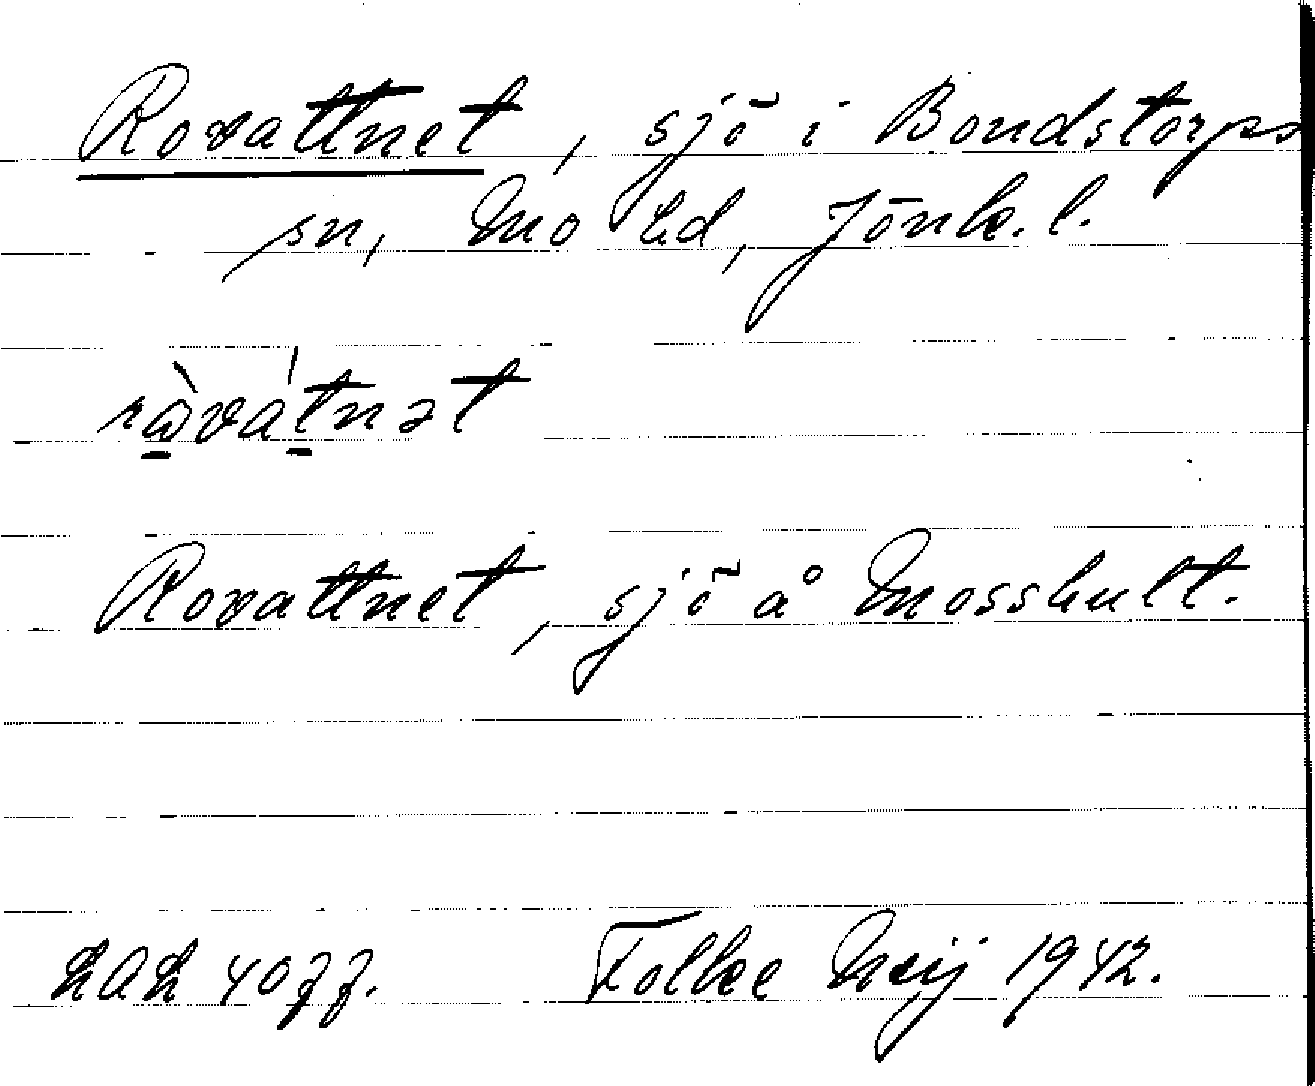 Rovattnet, sjö i Bondstorps
sn, Mo hd, Jönk. l.
rò̱vát̠nət
Rovattnet, sjö å Mosshult.
4077. Folke 1942.